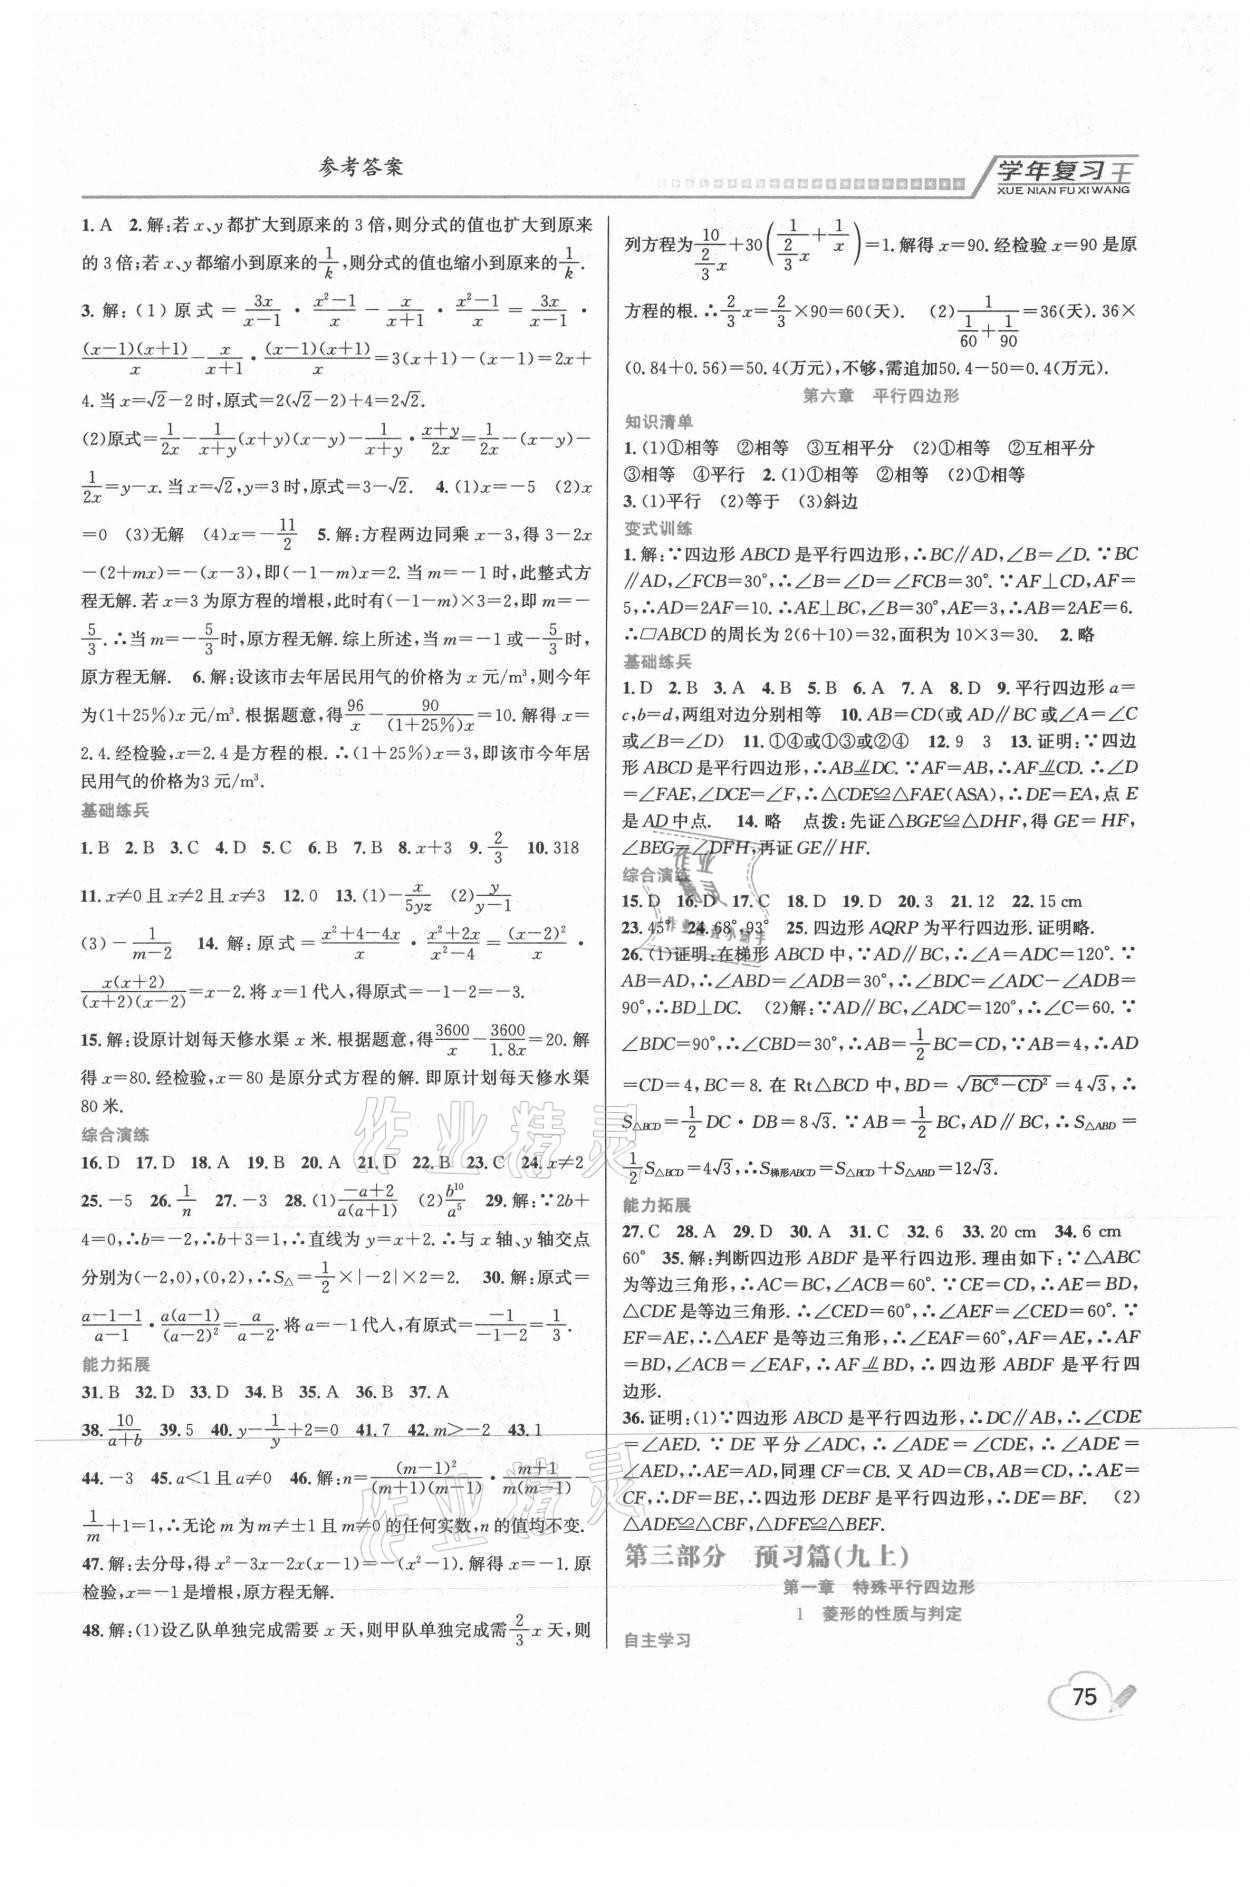 参考答案
学年复习王
XUE NIAN FU XI WANG
1. A 2. 解:若 x、y 都扩大到原来的 3 倍,则分式的值也扩大到原来
的 3 倍;若 x、y 都缩小到原来的1/k,则分式的值也缩小到原来的1/k.
3. 解:(1) 原式 = 3x/(x−1) · (x²−1)/x − x/(x+1) · (x²−1)/x = 3x/(x−1) ·
(x−1)(x+1)/x − x/(x+1) · (x−1)(x+1)/x =3(x+1)−(x−1)=2x+
4. 当 x=√2−2 时,原式=2(√2−2)+4=2√2.
(2)原式=1/2x − 1/(x+y) (x+y)(x−y) − 1/(x+y) · (x+y)/2x = 1/2x −(x−y)−
1/2x=y−x. 当 x=√2,y=3 时,原式=3−√2. 4. (1)x=−5 (2)x
=0 (3)无解 (4)x=−11/2 5. 解:方程两边同乘 x−3,得 3−2x
−(2+mx)=−(x−3),即(−1−m)x=2. 当 m=−1 时,此整式方
程无解. 若 x=3 为原方程的增根,此时有(−1−m)×3=2,即 m=−
5/3. ∴当 m=−5/3时,原方程无解. 综上所述,当 m=−1 或−5/3时,
原方程无解. 6. 解:设该市去年居民用气的价格为 x 元/m³,则今年
为(1+25%)x 元/m³. 根据题意,得96/x − 90/(1+25%)x =10. 解得 x=
2.4. 经检验,x=2.4 是方程的根. ∴(1+25%)x=3,即该市今年居
民用气的价格为3 元/m³.
基础练兵
1. B 2. B 3. C 4. D 5. C 6. B 7. B 8. x+3 9. 2/3 10. 318
11. x≠0 且 x≠2 且 x≠3 12. 0 13. (1)−x/5yz (2)y/(y−1)
(3)−1/(m−2) 14. 解:原式=(x²+4−4x)/x · (x²+2x)/(x²−4) = (x−2)²/x ·
x(x+2)/(x+2)(x−2)=x−2. 将 x=1 代人,得原式=−1−2=−3.
15. 解:设原计划每天修水渠 x 米. 根据题意,得3600/x − 3600/1.8x=20. 解
得 x=80. 经检验,x=80 是原分式方程的解. 即原计划每天修水渠
80 米.
综合演练
16. D 17. D 18. A 19. B 20. A 21. D 22. B 23. C 24. x≠2
25. −5 26. 1/n 27. −3 28. (1)(−a+2)/a(a+1) (2)b¹⁰/a⁵ 29. 解:∵2b+
4=0,∴b=−2,∴b+3=1,∴直线为 y=x+2. ∴与 x 轴、y 轴交点
分别为(−2,0),(0,2),∴S△=1/2×|−2|×2=2. 30. 解:原式=
(a−1−1)/(a−1) · a(a−1)/(a−2)² = a/(a−2). 将 a=−1 代人,有原式=−1/(−1−2)=1/3.
能力拓展
31. B 32. D 33. D 34. B 35. A 36. B 37. A
38. 10/(a+b) 39. 5 40. y−1/y+2=0 41. 7 42. m>−2 43. 1
44. −3 45. a<1 且 a≠0 46. 解:n=(m−1)²/(m+1)(m−1) · (m+1)/m(m−1) −
1/m+1=1,∴无论 m 为 m≠±1 且 m≠0 的任何实数,n 的值均不变.
47. 解:去分母,得 x²−3x−2x(x−1)=(x+1)(x−1). 解得 
检验,x=−1 是增根,原方程无解.
48. 解:(1)设乙队单独完成需要 x 天,则甲队单独完成需2/3x 天,则
列方程为10/(2/3x)+30(1/(2/3x)+1/x)=1. 解得 x=90. 经检验 x=90 是原
方程的根. ∴2/3x=2/3×90=60(天). (2)1/(1/60+1/90)=36(天). 36×
(0.84+0.56)=50.4(万元),不够,需追加50.4−50=0.4(万元).
第六章 平行四边形
知识清单
1. (1)①相等 ②相等 ③互相平分 (2)①相等 ②互相平分
③相等 ④平行 2. (1)①相等 ②相等 (2)①相等
3. (1)平行 (2)等于 (3)斜边
变式训练
1. 解:∵四边形 ABCD 是平行四边形,∴BC∥AD,∠B=∠D. ∵BC
∥AD,∠FCB=30°,∴∠B=∠D=∠FCB=30°. ∵AF⊥CD,AF=
5,∴AD=2AF=10. ∴AE⊥BC,∠B=30°,AE=3,∴AB=2AE=6.
∴▱ABCD 的周长为 2(6+10)=32,面积为 10×3=30. 2. 略
基础练兵
1. D 2. B 3. A 4. B 5. B 6. A 7. A 8. D 9. 平行四边形 a=
c,b=d,两组对边分别相等 10. AB=CD(或 AD∥BC 或∠A=∠C
或∠B=∠D) 11. ①④或①③或②④ 12. 9 3 13. 证明:∵四边
形 ABCD 是平行四边形,∴AB⫽DC. ∵AF=AB,∴AF⫽CD. ∴∠D
=∠FAE,∠DCE=∠F,∴△CDE≌△FAE(ASA),∴DE=EA,点 E
是 AD 中点. 14. 略 点拨:先证△BGE≌△DHF,得 GE=HF,
∠BEG=∠DFH,再证GE∥HF.
综合演练
15. D 16. D 17. C 18. D 19. D 20. 3 21. 12 22. 15 cm
23. 45° 24. 68°,93° 25. 四边形 AQRP 为平行四边形. 证明略.
26. (1)证明:在梯形 ABCD 中,∵AD∥BC,∴∠A=∠ADC=120°. ∵
AB=AD,∴∠ABD=∠ADB=30°,∴∠BDC=∠ADC−∠ADB=
90°,∴BD⊥DC. (2)解:∵AD∥BC,∠ADC=120°,∴∠C=60. ∵
∠BDC=90°,∴∠CBD=30°,∴AB=1/2BC=CD,∵AB=4,∴AD
=CD=4,BC=8. 在 Rt△BCD 中,BD=√(BC²−CD²)=4√3,∴
S△BCD=1/2DC·DB=8√3. ∵AB=1/2BC,AD∥BC,∴S△ABD=
1/2S△BCD=4√3,∴S梯形ABCD=S△BCD+S△ABD=12√3.
能力拓展
27. C 28. A 29. D 30. A 31. C 32. 6 33. 20 cm 34. 6 cm
60° 35. 解:判断四边形 ABDF 是平行四边形. 理由如下:∵△ABC
为等边三角形,∴AC=BC,∠ACB=60°. ∵CE=CD,∴AE=BD,
△CDE是等边三角形. ∴∠CED=60°,∴∠AEF=∠CED=60°. ∵
EF=AE,∴△AEF 是等边三角形,∴∠EAF=60°,AF=AE,∴AF
=BD,∠ACB=∠EAF,∴AF⫽BD,∴四边形 ABDF 是平行四
边形.
36. 证明:(1)∵四边形 ABCD 是平行四边形,∴DC∥AB,∴∠CDE
=∠AED. ∵DE 平分∠ADC,∴∠ADE=∠CDE,∴∠ADE=
∠AED,∴AE=AD,同理 CF=CB. 又 AD=CB,AB=CD,∴AE=
CF,∴DF=BE,∴四边形 DEBF 是平行四边形,∴DE=BF. (2)
△ADE≌△CBF,△DFE≌△BEF.
第三部分 预习篇(九上)
第一章 特殊平行四边形
1 菱形的性质与判定
自主学习
75
作业精灵
作业精灵